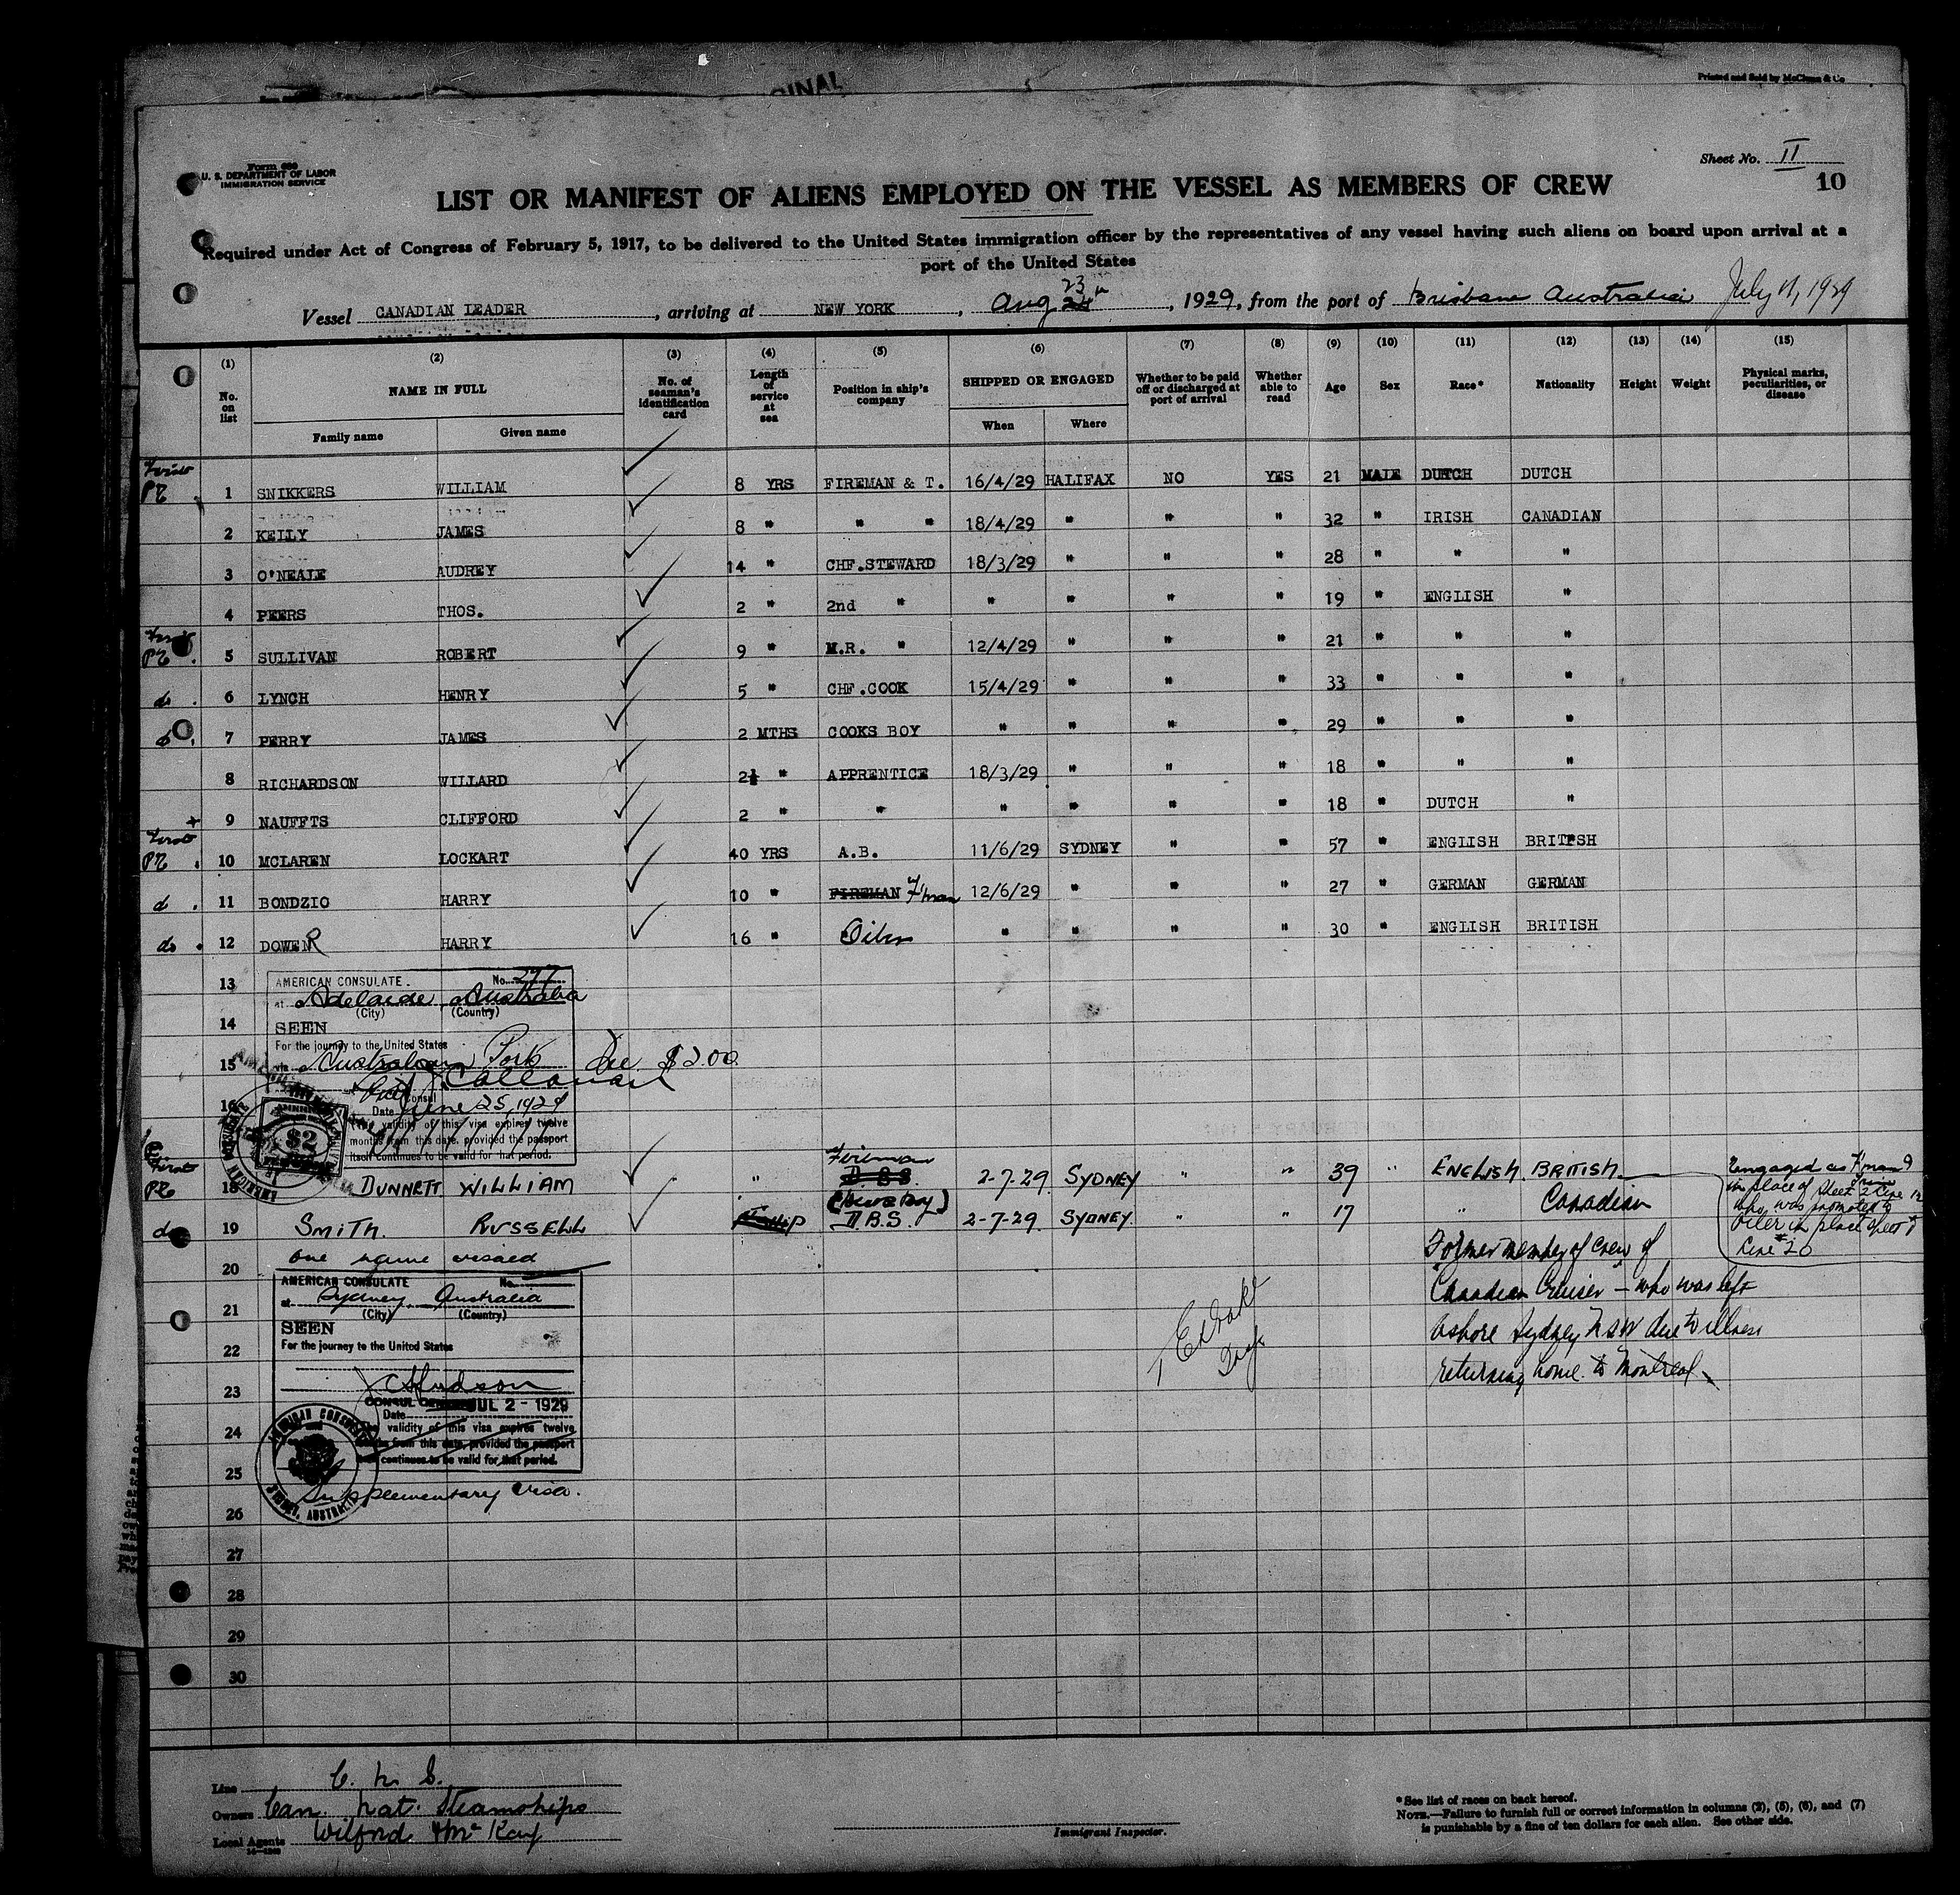 GINAL
Printed and Sold by McClunn & Co
Form 680
U. S. DEPARTMENT OF LABOR
IMMIGRATION SERVICE
Sheet No. II
10
LIST OR MANIFEST OF ALIENS EMPLOYED ON THE VESSEL AS MEMBERS OF CREW
Required under Act of Congress of February 5, 1917, to be delivered to the United States immigration officer by the representatives of any vessel having such aliens on board upon arrival at a
port of the United States
Vessel CANADIAN LEADER, arriving at NEW YORK, Aug 23, 1929, from the port of Brisbane Australia July 11, 1929
(1) No. on list (2) NAME IN FULL Family name Given name (3) No. of seaman's identification card (4) Length of service at sea (5) Position in ship's company (6) SHIPPED OR ENGAGED When Where (7) Whether to be paid off or discharged at port of arrival (8) Whether able to read (9) Age (10) Sex (11) Race* (12) Nationality (13) Height (14) Weight (15) Physical marks, peculiarities, or disease
1 SNIKKERS WILLIAM 8 YRS FIREMAN & T. 16/4/29 HALIFAX NO YES 21 MALE DUTCH DUTCH
2 KEILY JAMES 8 " " " 18/4/29 " " " 32 " IRISH CANADIAN
3 O'NEALE AUDREY 14 " CHF.STEWARD 18/3/29 " " " 28 " " "
4 PEERS THOS. 2 " 2nd " " " " " 19 " ENGLISH "
5 SULLIVAN ROBERT 9 " M.R. " 12/4/29 " " " 21 " " "
6 LYNCH HENRY 5 " CHF.COOK 15/4/29 " " " 33 " " "
7 PERRY JAMES 2 MTHS COOKS BOY " " " " 29 " " "
8 RICHARDSON WILLARD 2½ " APPRENTICE 18/3/29 " " " 18 " " "
9 NAUFFTS CLIFFORD 2 " " " " " " 18 " DUTCH "
10 MCLAREN LOCKART 40 YRS A.B. 11/6/29 SYDNEY " " 57 " ENGLISH BRITISH
11 BONDZIO HARRY 10 " FIREMAN F'man 12/6/29 " " " 27 " GERMAN GERMAN
12 DOWER HARRY 16 " Oiler " " " " 30 " ENGLISH BRITISH
13 AMERICAN CONSULATE. No. 297
at Adelaide, Australia
(City) (Country)
14 SEEN
For the journey to the United States
15 via Australian Ports Fee $2.00
Callanan
Consul
16 Date June 25, 1929
The validity of this visa expires twelve
months from this date, provided the passport
itself continues to be valid for that period.
$2
18 DUNNETT WILLIAM " Fireman D.B.S. 2-7-29 SYDNEY " " 39 " ENGLISH. BRITISH
19 SMITH. RUSSELL D.B.S. 2-7-29 SYDNEY. " " 17 " Canadian
Engaged as F'man
in place of Sheet 2 Line 12
who was promoted to
Oiler in place sheet 1
Line #20
one name visaed
20
Former member of crew of
Canadian Cruiser - who was left
ashore Sydney NSW due to illness
returning home to Montreal
AMERICAN CONSULATE No.
at Sydney, Australia
21 (City) (Country)
SEEN
22 For the journey to the United States
23
Date JUL 2 - 1929
24 validity of this visa expires twelve
months from this date, provided the passport
25 continues to be valid for that period.
AMERICAN CONSULATE
SYDNEY, AUSTRALIA
Supplementary Visa.
26
27
28
29
30
Line C. N. S.
Owners Can. Nat. Steamships
Local Agents Wilford & McKay
Immigrant Inspector.
* See list of races on back hereof.
NOTE.—Failure to furnish full or correct information in columns (2), (5), (6), and (7)
is punishable by a fine of ten dollars for each alien. See other side.